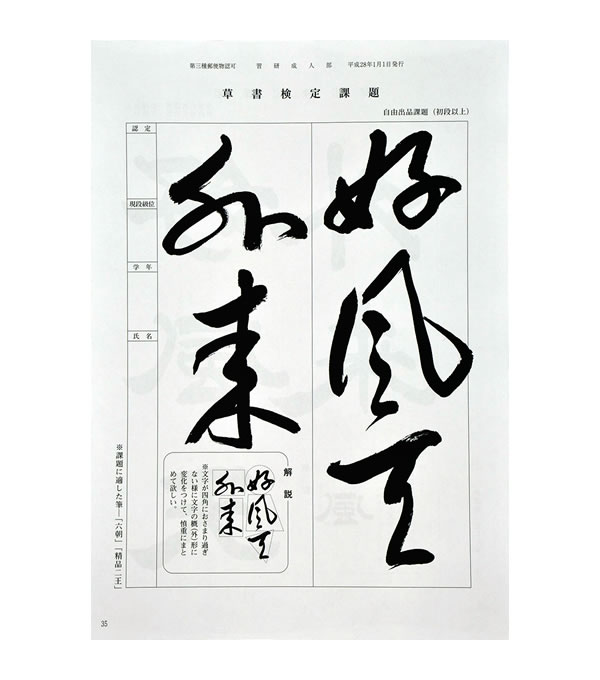 第三種郵便物認可　習研成人部　平成28年1月1日発行
草書検定課題
自由出品課題（初段以上）
好風天
外来
認定
現段級位
学年
氏名
解説
※文字が四角におさまり過ぎ
ない様に文字の概(外)形に
変化をつけて、慎重にまと
めて欲しい。
好風天
外来
※課題に適した筆―「六朝」「精品二王」
35